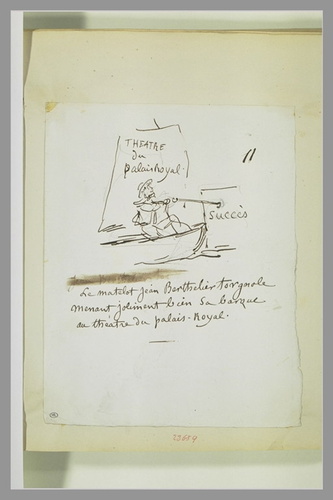 THEATRE
du
palais Royal.
11
Succès
Le matelot jean Berthelier torgnole
menant joliment bien sa barque
au théatre du palais-Royal.